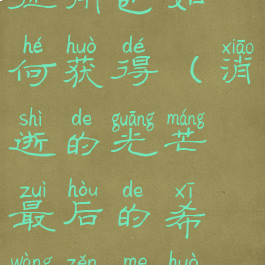 hé huò dé xiāo
何获得（消
shì de guāng máng
逝的光芒
zuì hòu de xī
最后的希
wàng zěn me huò